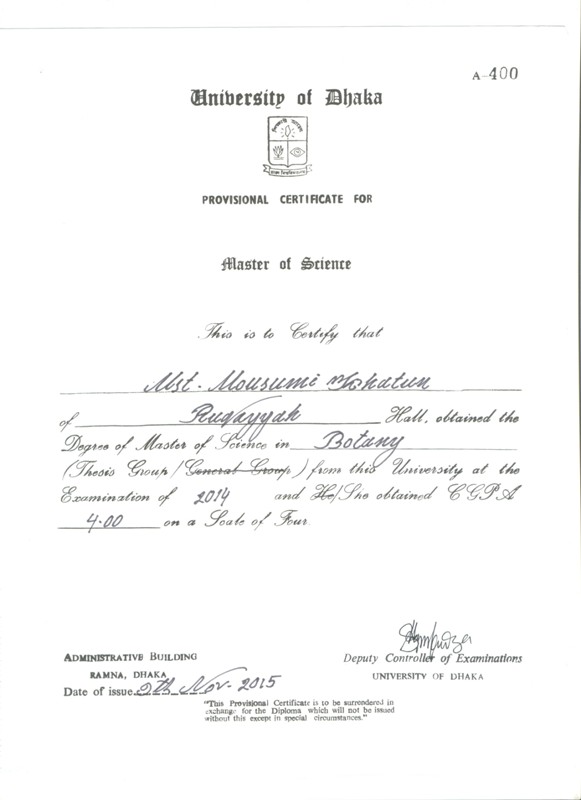 A-400
University of Dhaka
PROVISIONAL CERTIFICATE FOR
Master of Science
This is to Certify that
Mst. Mousumi Khatun
of Ruqayyah Hall, obtained the
Degree of Master of Science in Botany
(Thesis Group/General Group) from this University at the
Examination of 2014 and He/She obtained CGPA
4.00 on a Scale of Four.
ADMINISTRATIVE BUILDING
RAMNA, DHAKA
Date of issue 9th Nov-2015
Deputy Controller of Examinations
UNIVERSITY OF DHAKA
"This Provisional Certificate is to be surrendered in
exchange for the Diploma which will not be issued
without this except in special circumstances."